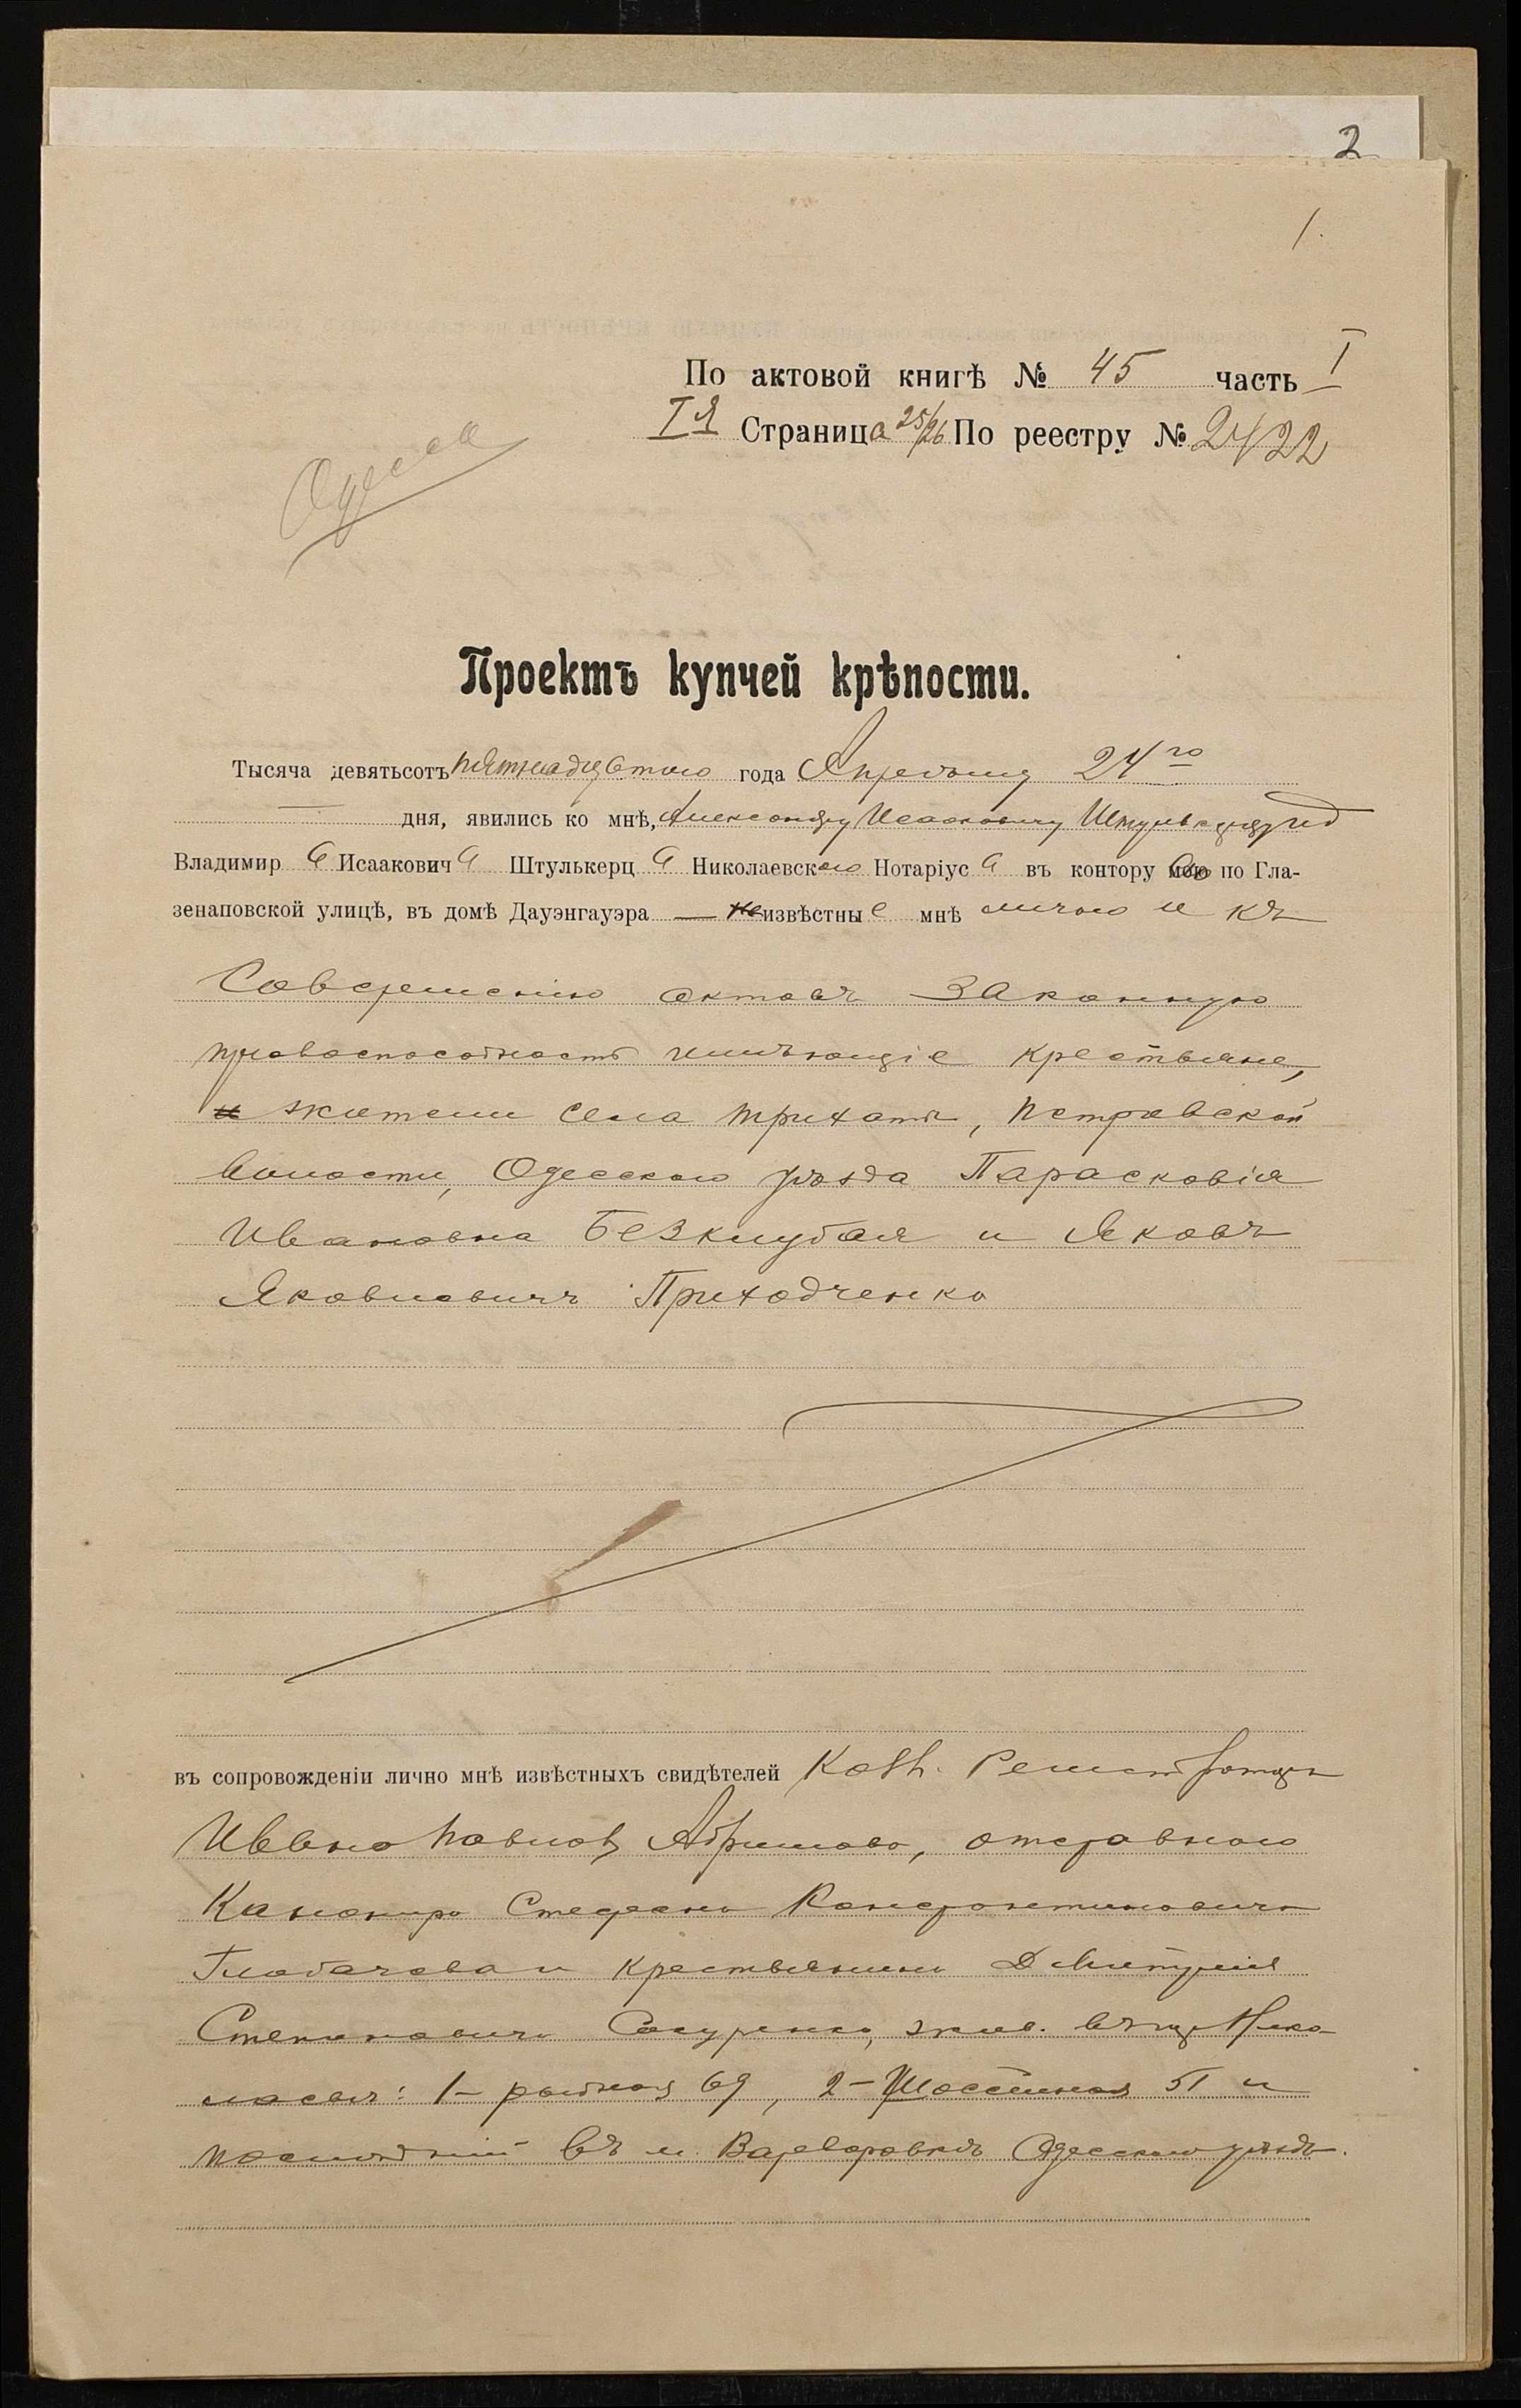 2
1.
По актовой книгѣ № 45 часть I
I я Страница 25/26 По реестру № 2422
Одесса
Проектъ купчей крѣпости.
Тысяча девятьсотъ пятнадцатого года Апреля 24го
дня, явились ко мнѣ, Александру Исааковичу
Владимира Исааковича Штулькерца Николаевского Нотаріуса въ контору его по Гла-
зенаповской улицѣ, въ домѣ Дауэнгауэра — неизвѣстные мнѣ лично и къ
Совершенію актовъ законную
правоспособность имѣющіе крестьяне,
и жители села Трихатъ, Петровской
волости, Одесского уѣзда Парасковія
Ивановна Безклубая и Яковъ
Яковлевичъ Приходченко
въ сопровожденіи лично мнѣ извѣстныхъ свидѣтелей Колл. Регистратора
Ивана Павлов. Абрамова, отставного
Канонира Стефана Константиновича
Глобачева и крестьянина Дмитрія
Степановича, жив. въ гор. Нико-
лаевѣ: 1- рыбная 69, 2- Шоссейная 51 и
послѣдній въ м. Варваровкѣ Одесского уѣзда.